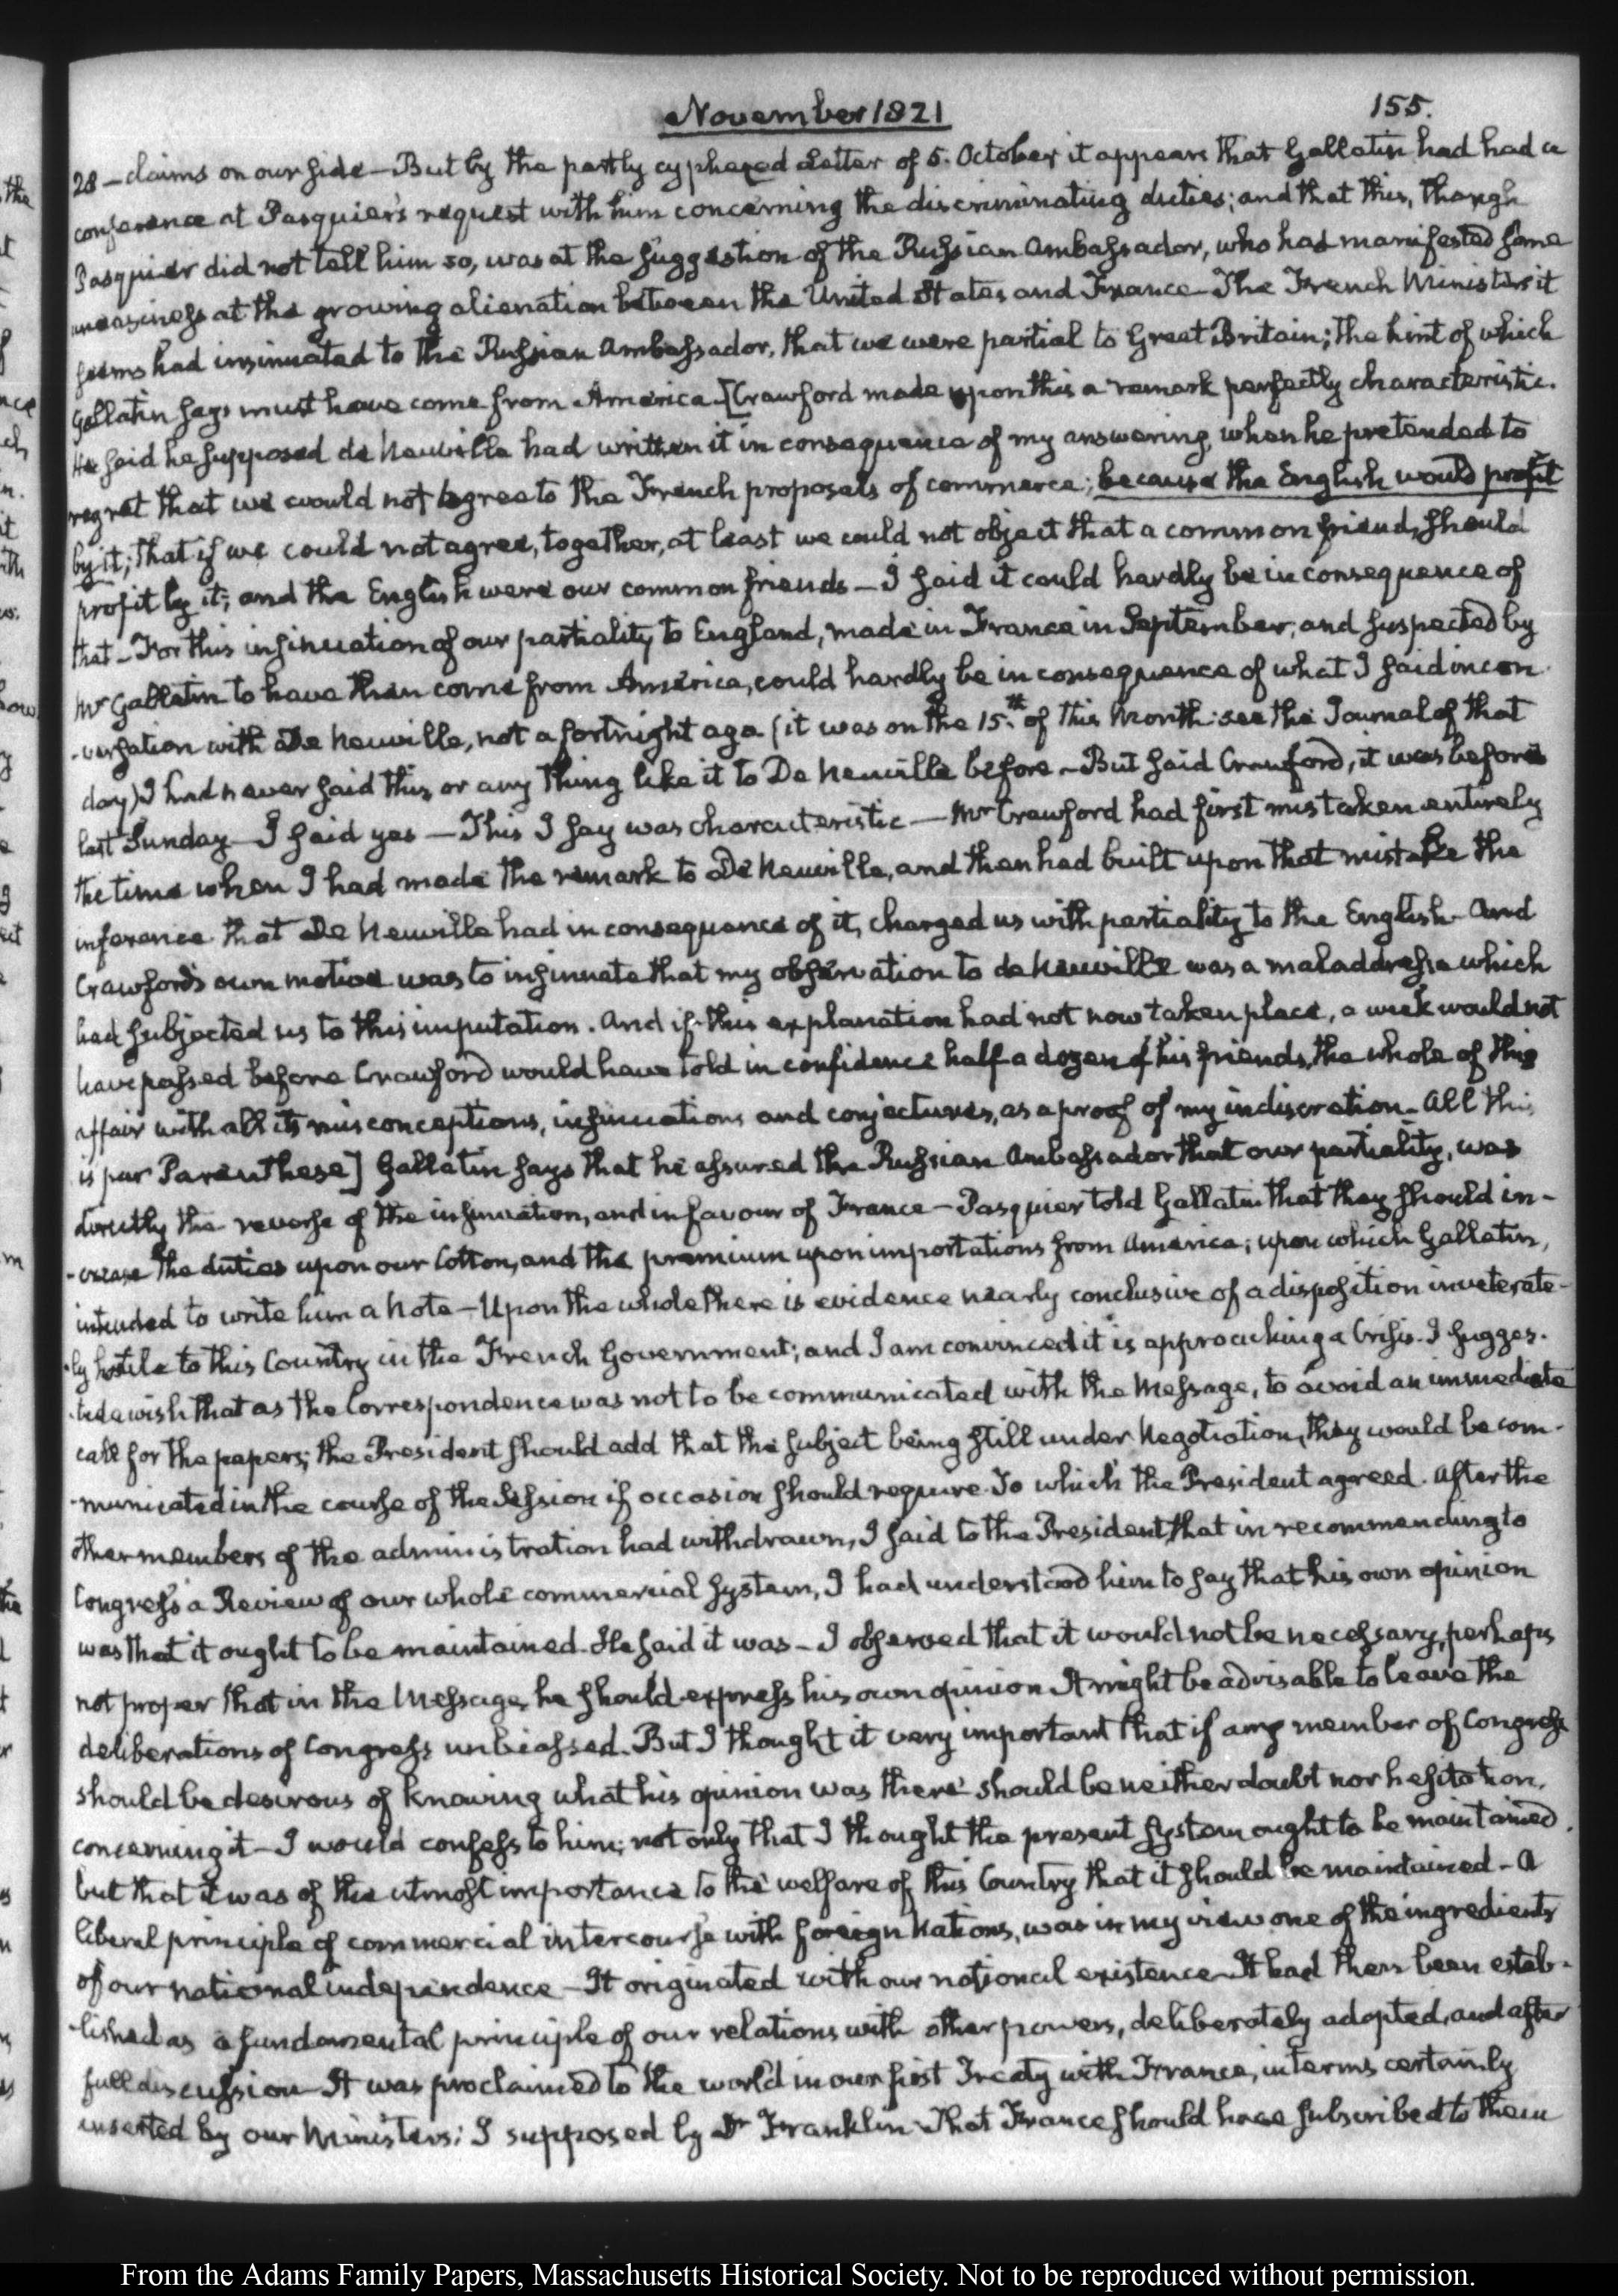 November 1821
155.
28 — claims on our side — But by the partly cyphered Letter of 5. October it appears that Gallatin had had a
conference at Pasquier's request with him concerning the discriminating duties; and that this, though
Pasquier did not tell him so, was at the suggestion of the Russian Ambassador, who had manifested some
uneasiness at the growing alienation between the United States and France — The French Ministers it
seems had insinuated to the Russian Ambassador, that we were partial to Great Britain; the hint of which
Gallatin says must have come from America. [Crawford made upon this a remark perfectly characteristic.
He said he supposed de Neuville had written it in consequence of my answering, when he pretended to
regret that we would not agree to the French proposals of commerce; because the English would profit
by it; that if we could not agree, together, at least we could not object that a common friend, should
profit by it; and the English were our common friends — I said it could hardly be in consequence of
that — For this insinuation of our partiality to England, made in France in September, and suspected by
Mr Gallatin to have then come from America, could hardly be in consequence of what I said in con-
-versation with De Neuville, not a fortnight ago (it was on the 15.th of this Month: see the Journal of that
day) I had never said this, or any thing like it to De Neuville before — But said Crawford, it was before
last Sunday — I said yes — This I say was characteristic — Mr Crawford had first mistaken entirely
the time when I had made the remark to De Neuville, and then had built upon that mistake the
inference that De Neuville had in consequence of it, charged us with partiality to the English — And
Crawford's own motive was to insinuate that my observation to de Neuville was a maladdresse which
had subjected us to this imputation. And if this explanation had not now taken place, a week would not
have passed before Crawford would have told in confidence half a dozen of his friends, the whole of this
affair with all its misconceptions, insinuations and conjectures, as a proof of my indiscretion — All this
is par Parenthese] Gallatin says that he assured the Russian Ambassador that our partiality, was
directly the reverse of the insinuation, and in favour of France — Pasquier told Gallatin that they should in-
-crease the duties upon our Cotton, and the premium upon importations from America; upon which Gallatin,
intended to write him a Note — Upon the whole there is evidence nearly conclusive of a disposition inveterate-
-ly hostile to this Country in the French Government; and I am convinced it is approaching a Crisis. I sugges-
-ted a wish that as the Correspondence was not to be communicated with the Message, to avoid an immediate
call for the papers; the President should add that the subject being still under Negotiation, they would be com-
-municated in the course of the Session if occasion should require. To which the President agreed. After the
other members of the administration had withdrawn, I said to the President, that in recommending to
Congress a Review of our whole commercial system, I had understood him to say that his own opinion
was that it ought to be maintained. He said it was — I observed that it would not be necessary, perhaps
not proper that in the Message, he should express his own opinion. It might be advisable to leave the
deliberations of Congress unbiassed. But I thought it very important that if any member of Congress
should be desirous of knowing what his opinion was there should be neither doubt nor hesitation,
concerning it — I would confess to him; not only that I thought the present system ought to be maintained,
but that it was of the utmost importance to the welfare of this Country that it should be maintained — A
liberal principle of commercial intercourse with foreign Nations, was in my view one of the ingredients
of our national independence — It originated with our national existence — It had then been estab-
-lished as a fundamental principle of our relations with other powers, deliberately adopted, and after
full discussion — It was proclaimed to the world in our first Treaty with France, in terms certainly
inserted by our Ministers; I supposed by Dr Franklin — That France should have subscribed to them
From the Adams Family Papers, Massachusetts Historical Society. Not to be reproduced without permission.